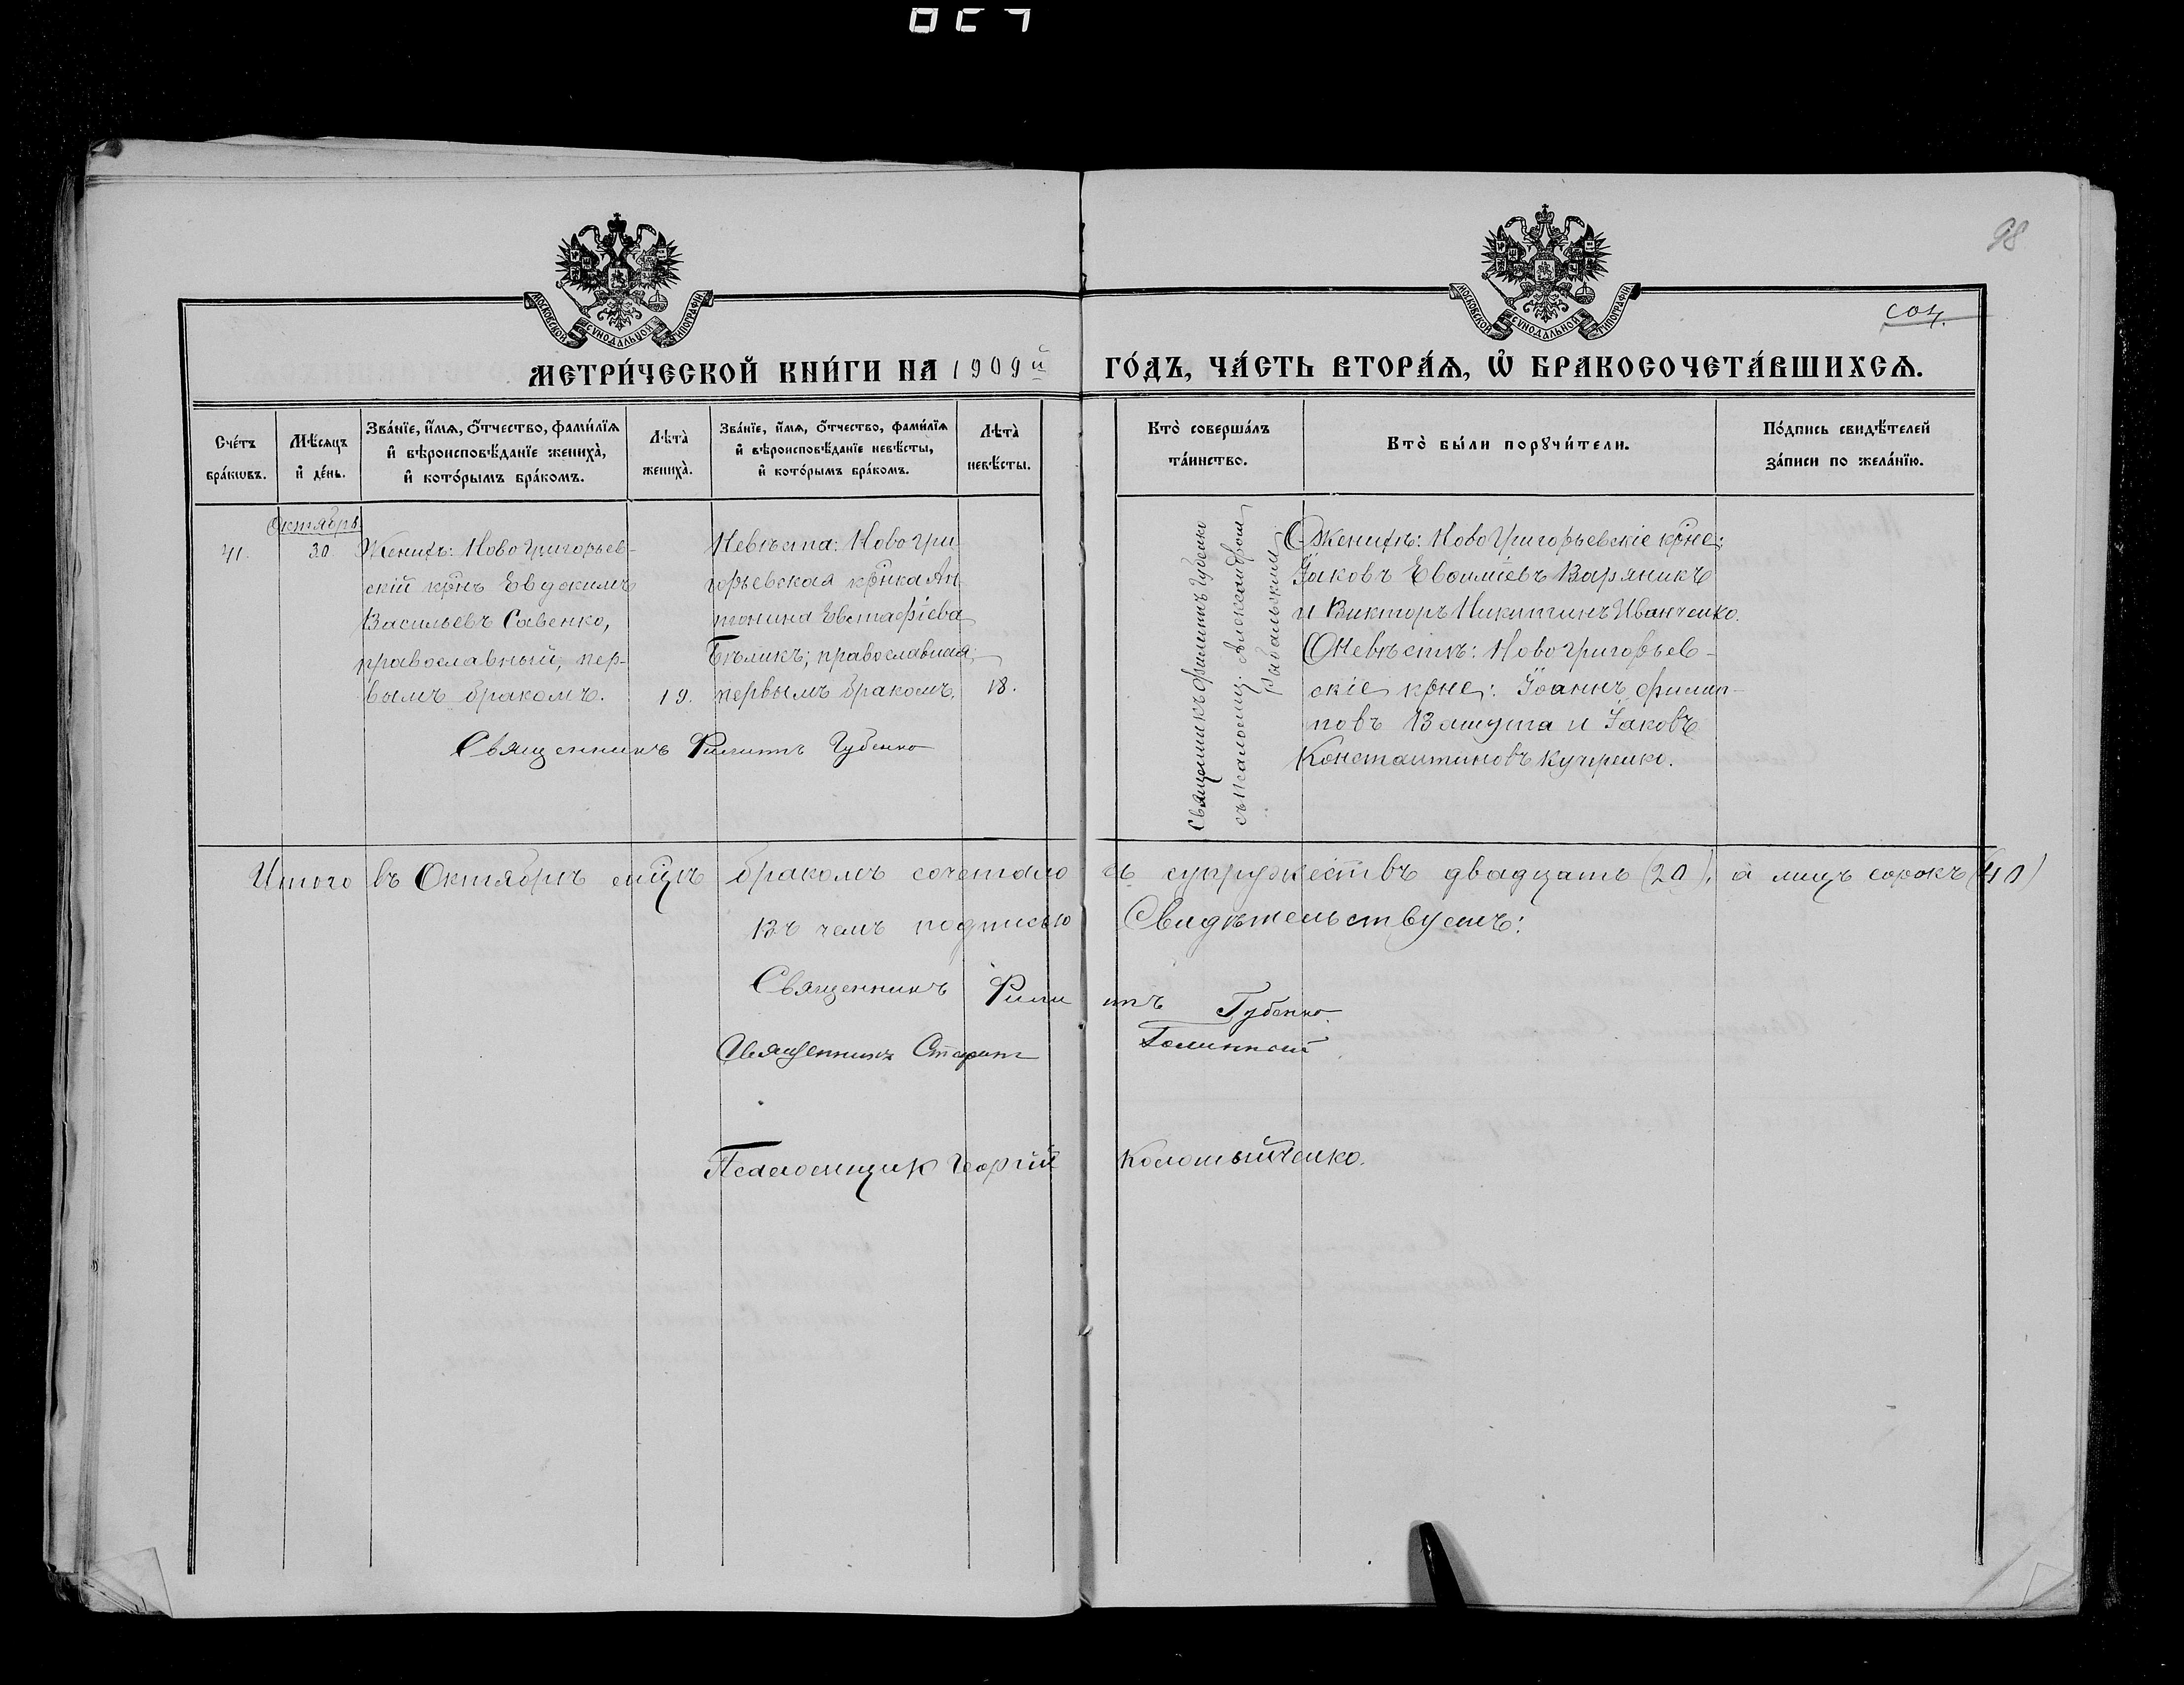 98
МОСКОВСКОЙ СѴНОДАЛЬНОЙ ТИПОГРАФІИ
МОСКОВСКОЙ СѴНОДАЛЬНОЙ ТИПОГРАФІИ
МЕТРИ́ЧЕСКОЙ КНИ́ГИ НА 1909й ГО́ДЪ, ЧА́СТЬ ВТОРА́Ѧ, Ѡ҆ БРАКОСОЧЕТА́ВШИХСѦ.
Сче́тъ бра́кѡвъ.
Мѣ́сѧцъ и҆ де́нь.
Зва́нїе, и҆́мѧ, ѻ҆́тчество, фами́лїѧ и҆ вѣроисповѣ́данїе жениха̀, и҆ кото́рымъ бра́комъ.
Лѣта̀ жениха̀.
Зва́нїе, и҆́мѧ, ѻ҆́тчество, фами́лїѧ и҆ вѣроисповѣ́данїе невѣ́сты, и҆ кото́рымъ бра́комъ.
Лѣта̀ невѣ́сты.
Кто̀ соверша́лъ та́инство.
Кто̀ бы́ли порꙋчи́тели.
По́дпись свидѣ́телей за́писи по жела́нїю.
Октябрь
41.
30
Женихъ: Ново Григорьев-
скій крнъ Евдокимъ
Васильевъ Савенко,
православный, пер-
вымъ бракомъ.
19.
Невѣста: Ново Гри
горьевская крнка Ан
тонина Евстафіева
Бѣликъ; православная,
первымъ бракомъ.
18.
Священникъ Филиппъ Губенко
Священникъ Филиппъ Губенко
съ псаломщ. Александром
Рыбальскимъ
О Женихѣ: Ново Григорьевскіе крне:
Іаковъ Евѳиміевъ Вараникъ
и Викторъ Никитинъ Иванченко.
О Невѣстѣ: Ново Григорьев-
скіе крне: Іоаннъ Филип-
повъ Вашута и Іаковъ
Константиновъ Кучеренко.
Итого въ Октябрѣ мцѣ бракомъ сочеталось супружествъ двадцать (20), а лицъ сорокъ (40)
Въ чемъ подписью Свидѣтельствуемъ:
Священникъ Филиппъ Губенко.
Священникъ
Псаломщик Георгій Коломыйченко.